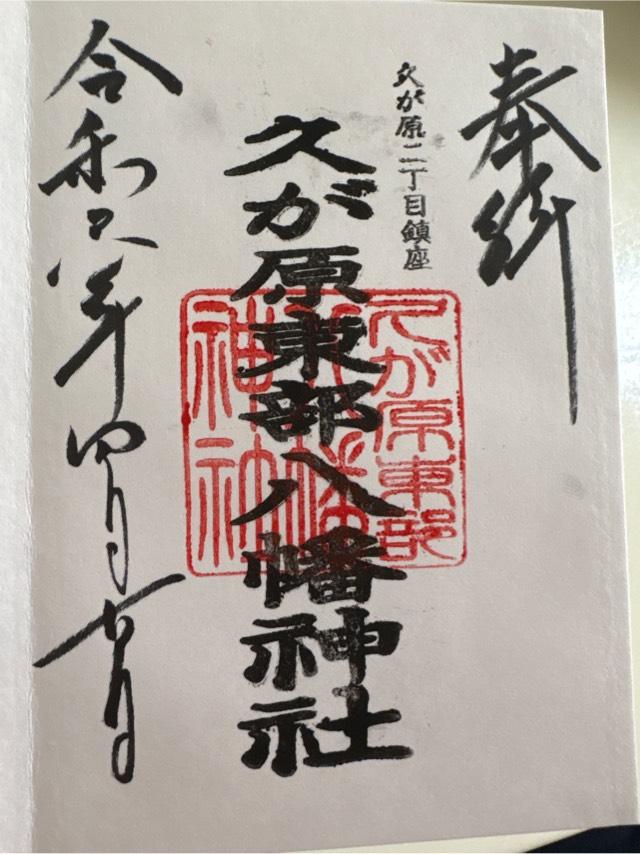 奉納
久が原二丁目鎮座
久が原東部八幡神社
久が原東部
令和六年四月七日